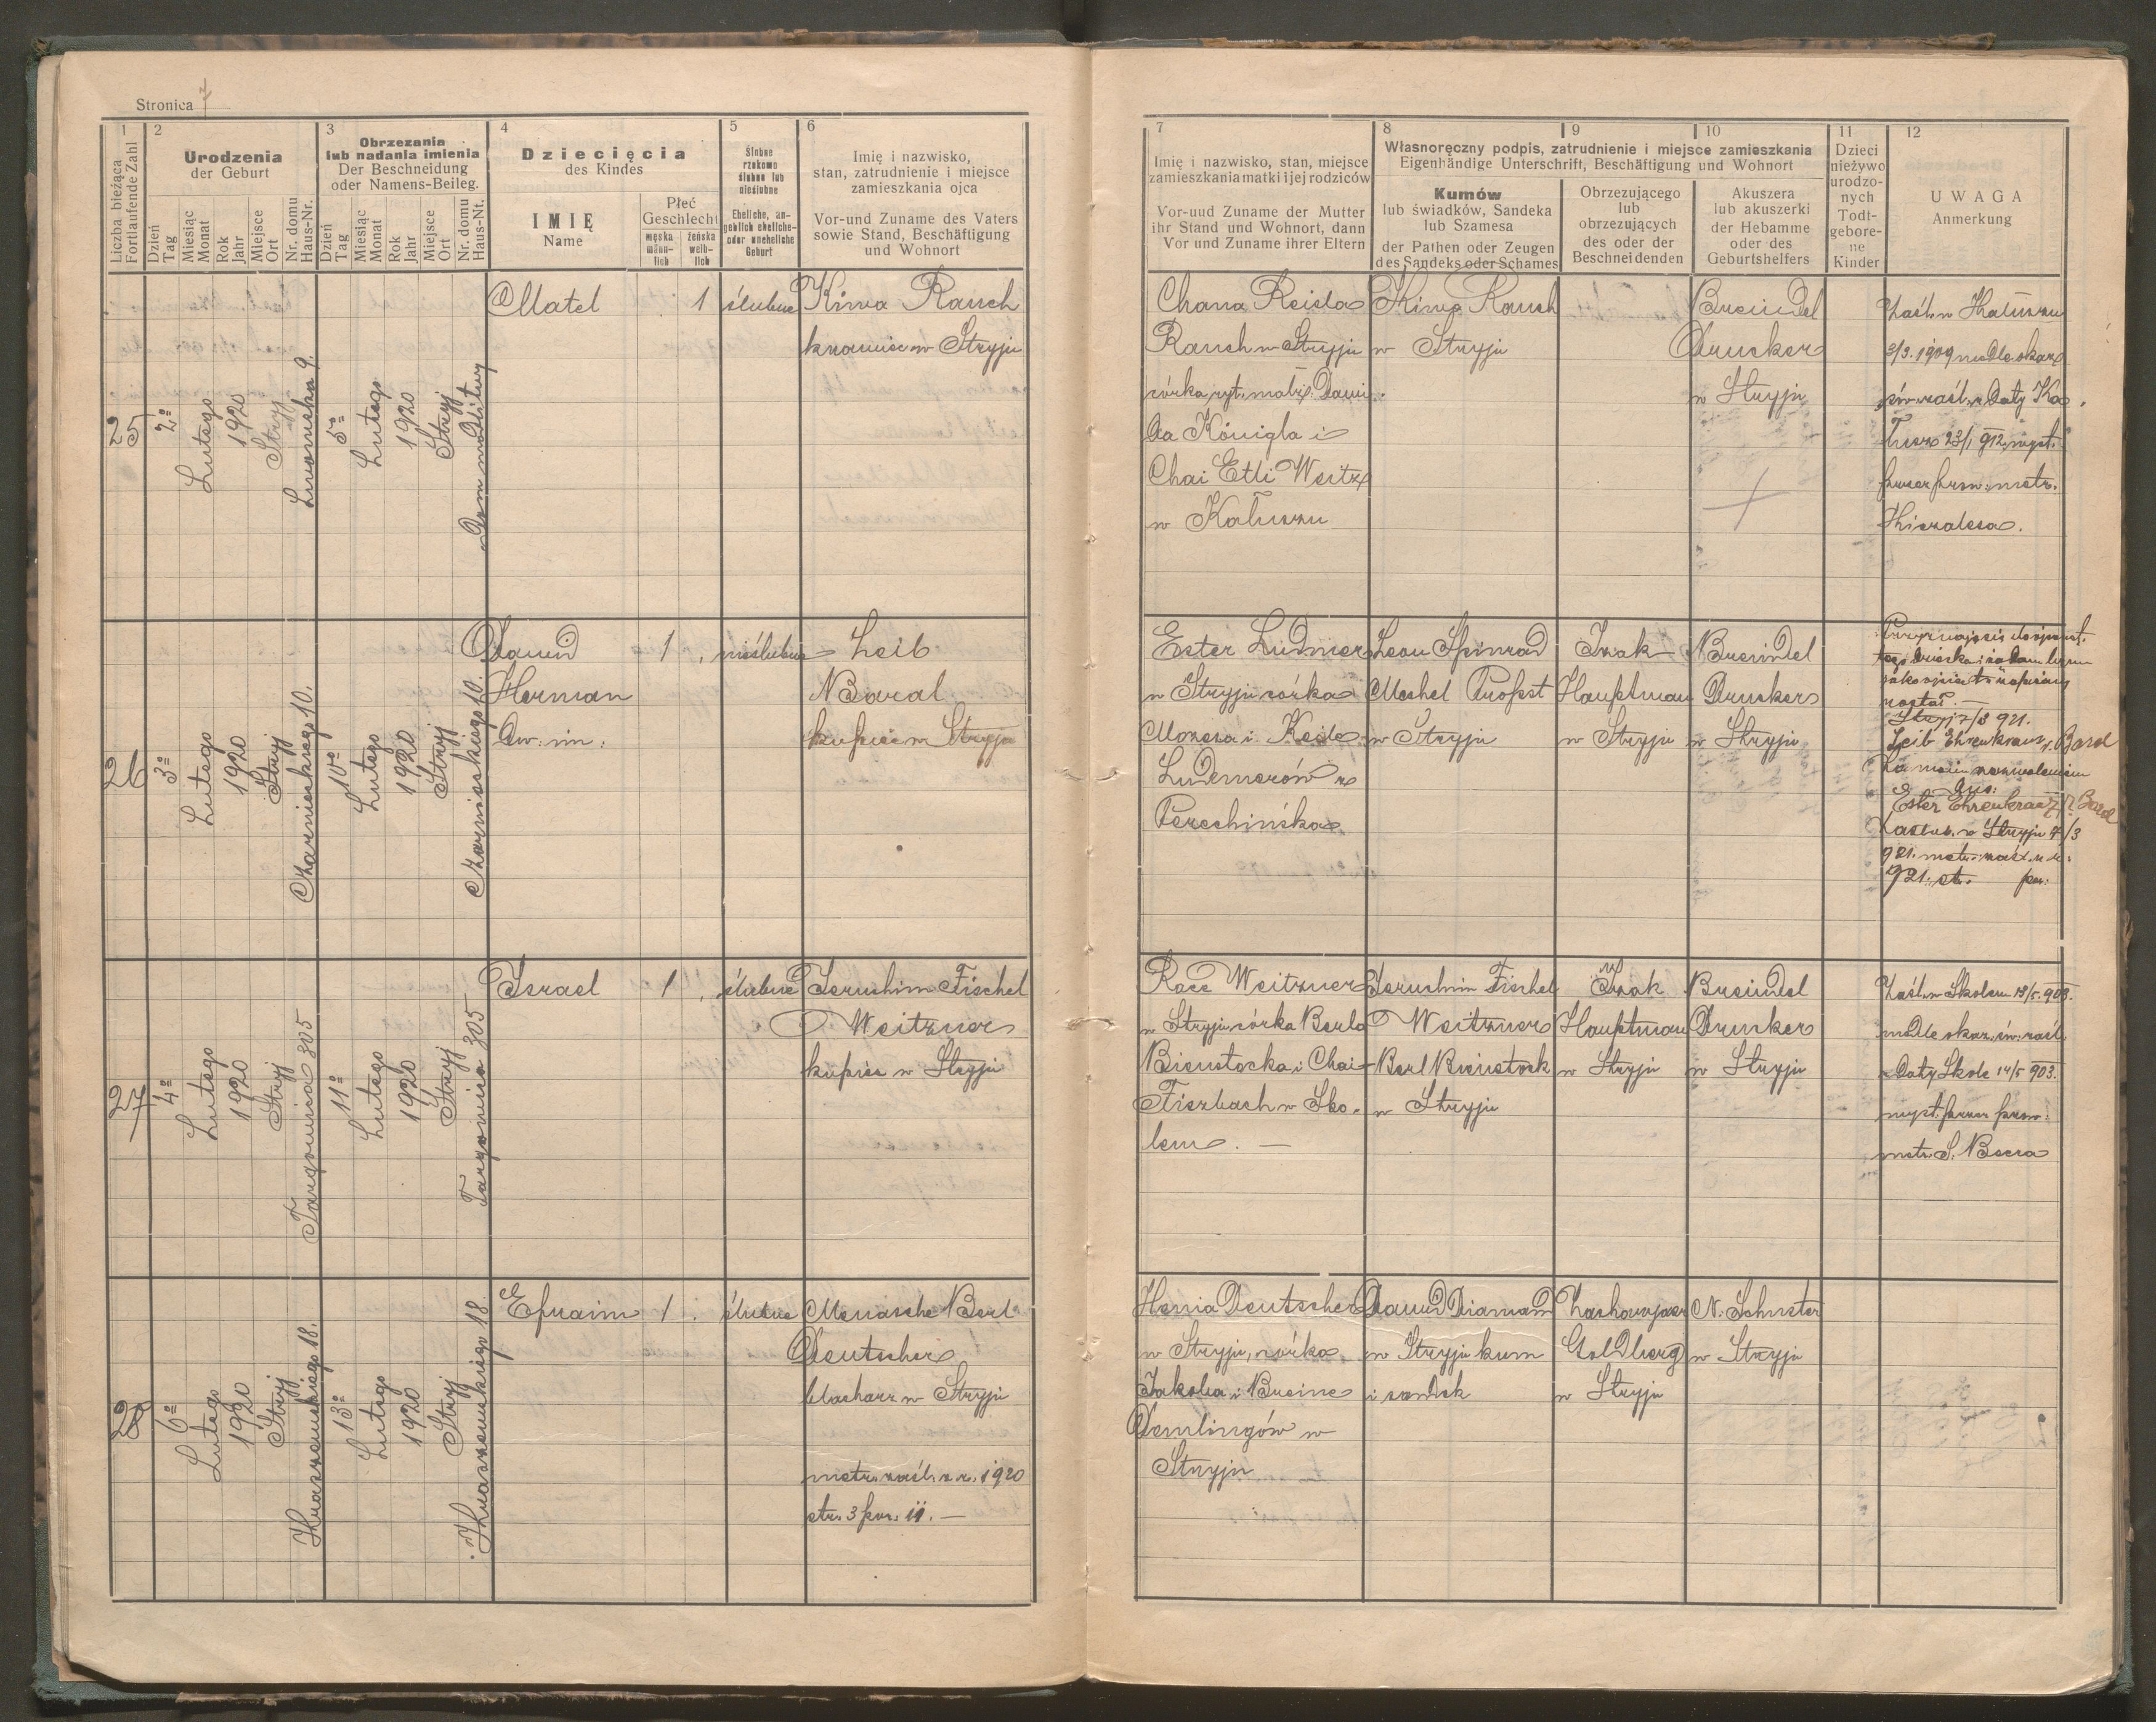 Stronica 7
1
Liczba bieżąca
Fortlaufende Zahl
2
Urodzenia
der Geburt
Dzień
Tag
Miesiąc
Monat
Rok
Jahr
Miejsce
Ort
Nr. domu
Haus-Nr.
3
Obrzezania
lub nadania imienia
Der Beschneidung
oder Namens-Beileg.
Dzień
Tag
Miesiąc
Monat
Rok
Jahr
Miejsce
Ort
Nr. domu
Haus-Nt.
4
Dziecięcia
des Kindes
IMIĘ
Name
Płeć
Geschlecht
męska
männ-
lich
żeńska
weib-
lich
5
Ślubne
rzekomo
ślubne lub
nieślubne
Eheliche, an-
geblich eheliche-
oder uneheliche
Geburt
6
Imię i nazwisko,
stan, zatrudnienie i miejsce
zamieszkania ojca
Vor-und Zuname des Vaters
sowie Stand, Beschäftigung
und Wohnort
7
Imię i nazwisko, stan, miejsce
zamieszkania matki i jej rodziców
Vor-uud Zuname der Mutter
ihr Stand und Wohnort, dann
Vor und Zuname ihrer Eltern
8
9
10
Własnoręczny podpis, zatrudnienie i miejsce zamieszkania
Eigenhändige Unterschrift, Beschäftigung und Wohnort
Kumów
lub świadków, Sandeka
lub Szamesa
der Pathen oder Zeugen
des Sandeks oder Schames
Obrzezującego
lub
obrzezujących
des oder der
Beschneidenden
Akuszera
lub akuszerki
der Hebamme
oder des
Geburtshelfers
11
Dzieci
nieżywo
urodzo-
nych
Todt-
gebore-
ne
Kinder
12
UWAGA
Anmerkung
25
2º
Lutego
1920
Stryj
Lwowska 9.
5º
Lutego
1920
Stryj
Dom modlitwy
Matel
1
ślubne
Kiwa Rauch
krawiec w Stryju
Chana Reisla
Rauch w Stryju
córka ryt. małż. Dawi-
da Königla i
Chai Etli Weitz
w Kałuszu
Kiwa Rauch
w Stryju
Breindel
Drucker
w Stryju
Zaśl. w Kałuszu
3/3. 1909 wedle okaz.
św. zaśl. z daty Ka-
łusz 23/1 912 wyst.
przez prow. metr.
26
3º
Lutego
1920
Stryj
Czarnieckiego 10.
10º
Lutego
1920
Stryj
Czarnieckiego 10.
Dawid
Herman
dw. im.
1
nieślubne
Leib
Baral
kupiec w Stryju
Ester Ludmer
w Stryju córka
Mozesa i Keile
Ludmerów z
Perehińska
Leon Spinrad
Mechel Probst
w Stryju
Izak
Hauptman
w Stryju
Breindel
Drucker
w Stryju
został. —
Stryj 7/3 921.
Leib Ehrenkranz r. Baral
Ester Ehrenkranz r. Baral
w Stryju 7/3
921. metr. zaśl. z r.
921. st. poz.
27
4º
Lutego
1920
Stryj
Targowica 305
11º
Lutego
1920
Stryj
Targowica 305
Israel
1
ślubne
Jeruchim Fischel
Weitzner
kupiec w Stryju
Race Weitzner
w Stryju córka Berla
Bienstocka i Chai
Fiszbach w Sko-
lem. —
Jeruchim Fischel
Weitzner
Berl Bienstock
w Stryju
Izak
Hauptman
w Stryju
Breindel
Drucker
w Stryju
Zaśl. w Skolem 13/5. 903.
wedle okaz. św. zaśl.
z daty Skole 14/5 903.
wyst. przez prow.
metr. S. Beera
28
6º
Lutego
1920
Stryj
Kraszewskiego 18.
13º
Lutego
1920
Stryj
Kraszewskiego 18.
Efraim
1
ślubne
Menasche Berl
Deutscher
blacharz w Stryju
metr. zaśl. z r. 1920
str. 3 poz. 11. —
Henia Deutscher
w Stryju, córka
Jakoba i Breine
Demlingów w
Stryju
Dawid Diamand
w Stryju kum
i sandek
Zacharyasz
Goldberg
w Stryju
N. Schuster
w Stryju